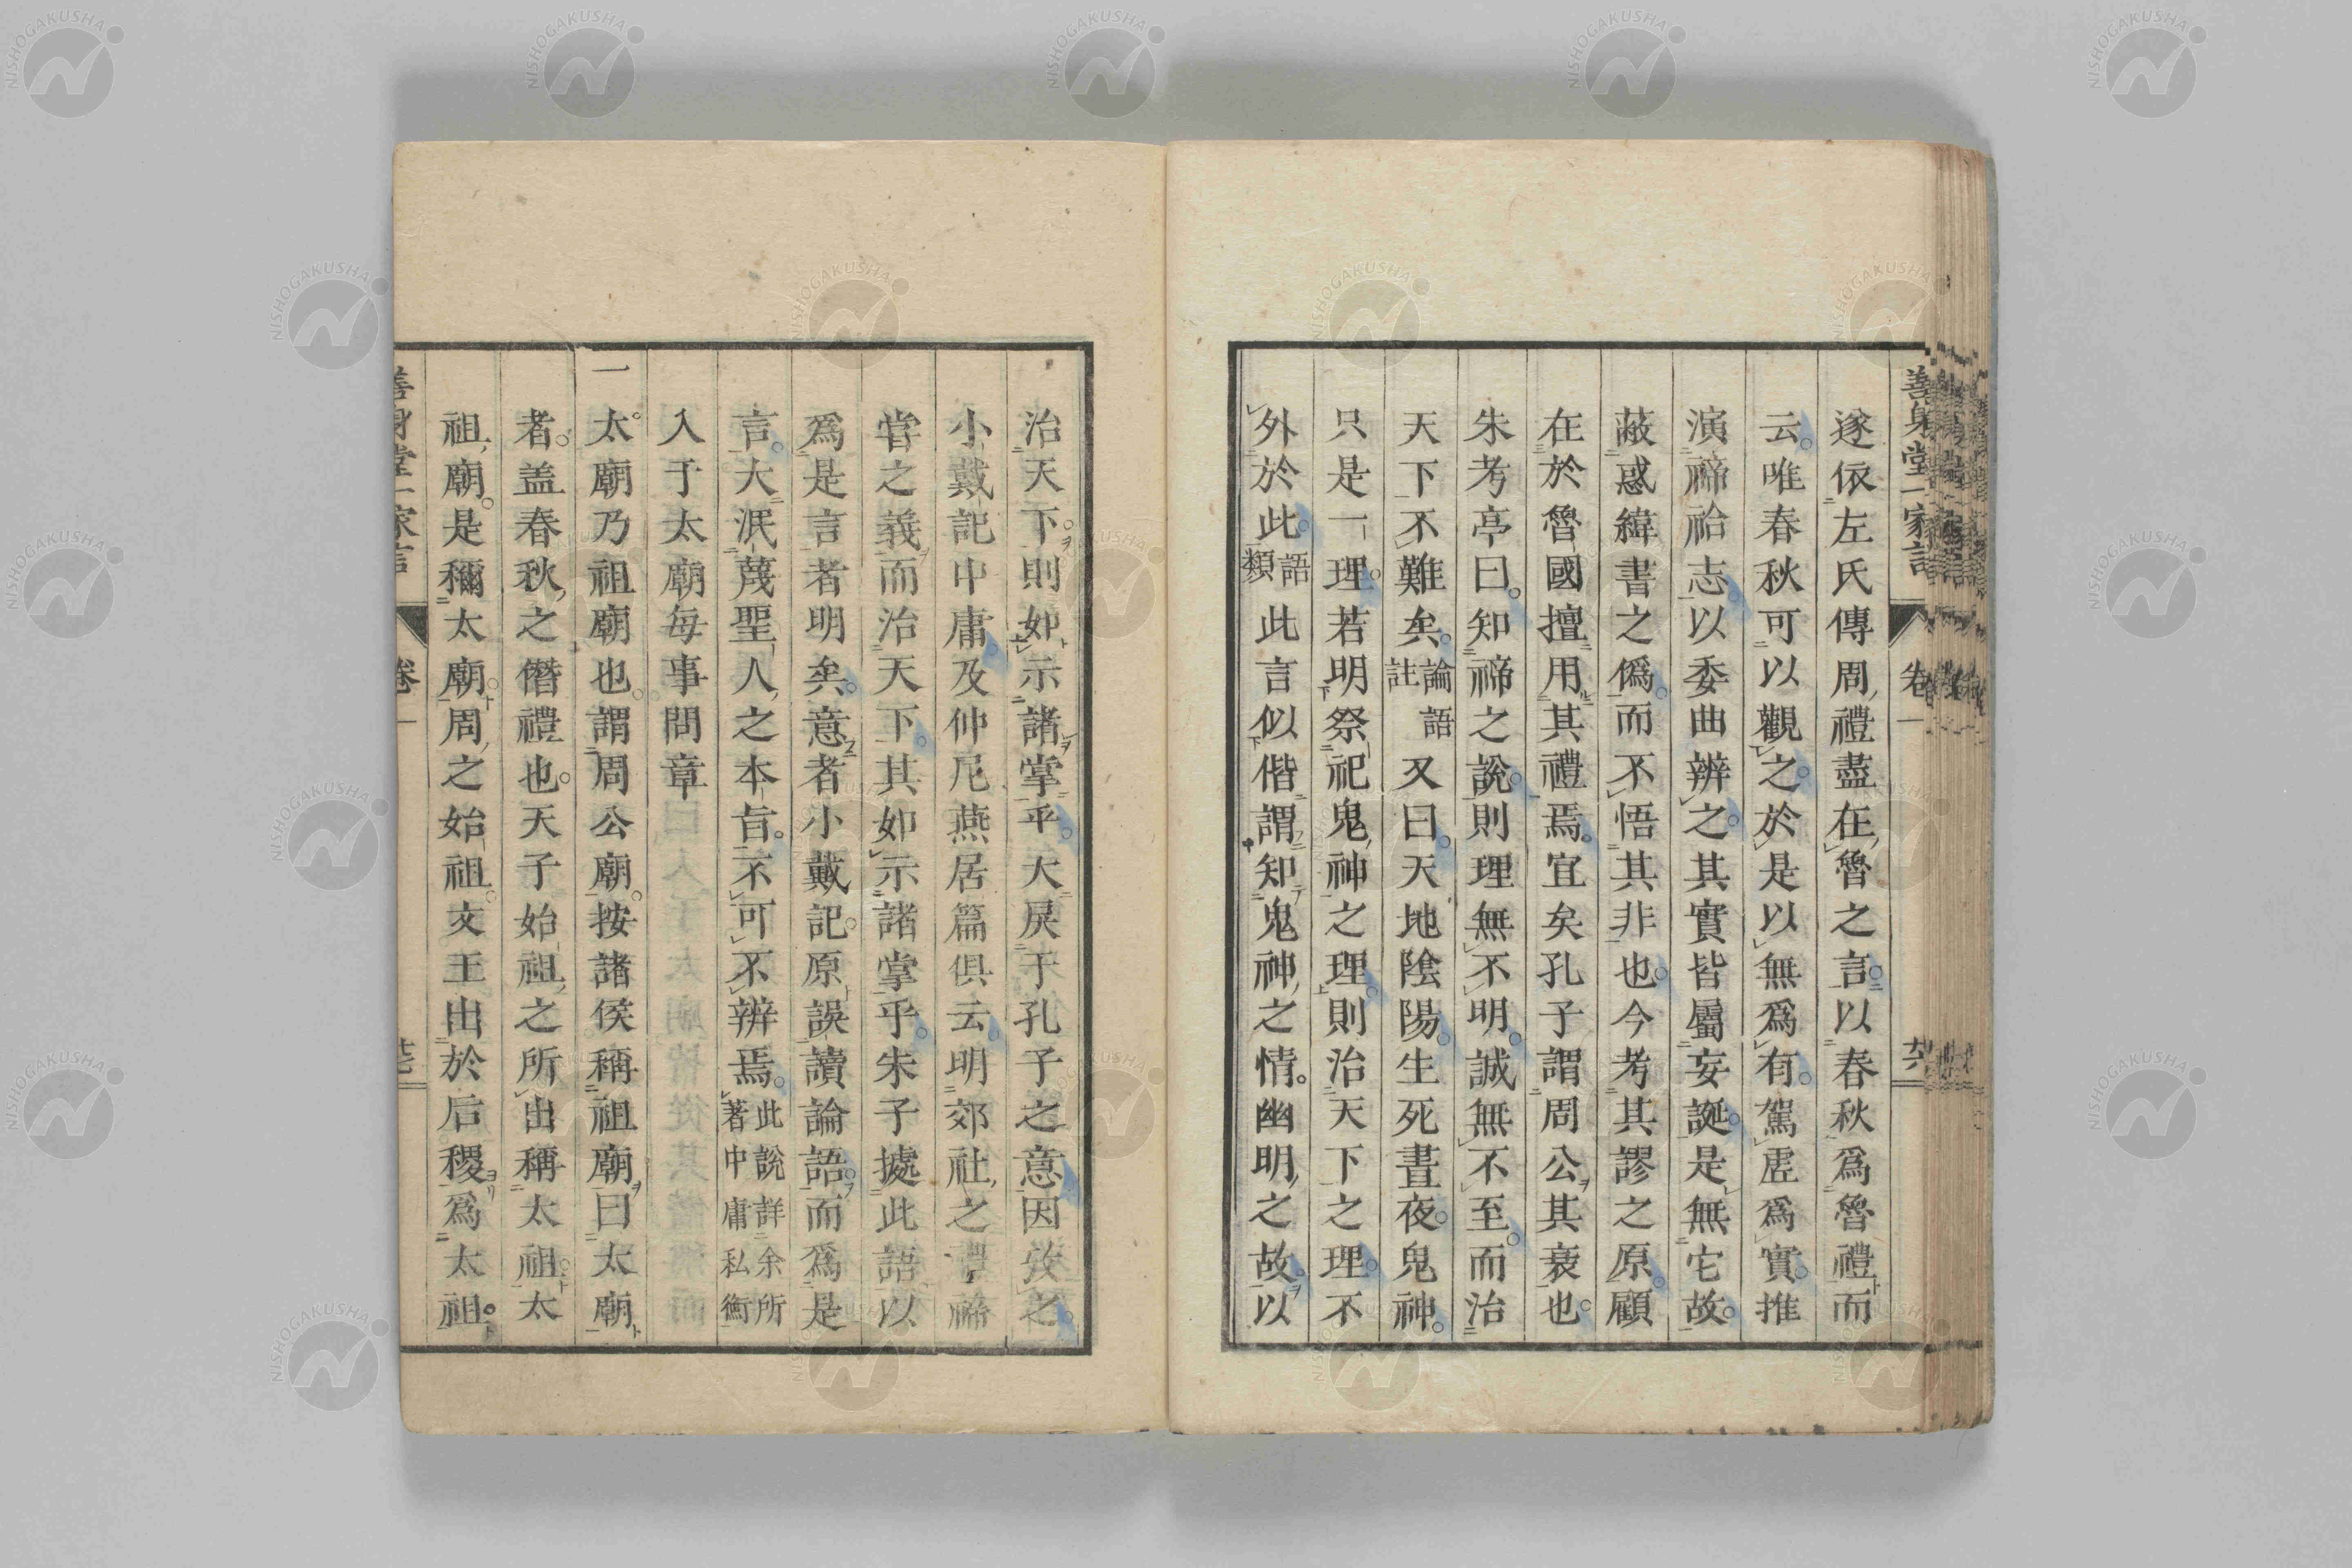 遂依左氏傳周禮盡在魯之言以春秋爲魯禮而
云唯春秋可以觀之於是以無爲有駕虛爲實推
演禘祫志以委曲辨之其實皆屬妄誕是無它故
蔽惑緯書之僞而不悟其非也今考其謬之原顧
在於魯國擅用其禮焉宜矣孔子謂周公其衰也
朱考亭曰知禘之說則理無不明誠無不至而治
天下不難矣論語註又曰天地陰陽生死晝夜鬼神
只是一理若明祭祀鬼神之理則治天下之理不
外於此語類此言似偕謂知鬼神之情幽明之故以
治天下則如示諸掌乎大戾于孔子之意因攷之
小戴記中庸及仲尼燕居篇俱云明郊社之禮禘
嘗之義而治天下其如示諸掌乎朱子據此語以
爲是言者明矣意者小戴記原誤讀論語而爲是
言大泯蔑聖人之本旨不可不辨焉此說詳余所著中庸私衡
入于太廟每事問章
一太廟乃祖廟也謂周公廟按諸侯稱祖廟曰太廟
者盖春秋之僭禮也天子始祖之所出稱太祖太
祖廟是稱太廟周之始祖文王出於后稷爲太祖
善身堂一家言
卷一
NISHOGAKUSHA